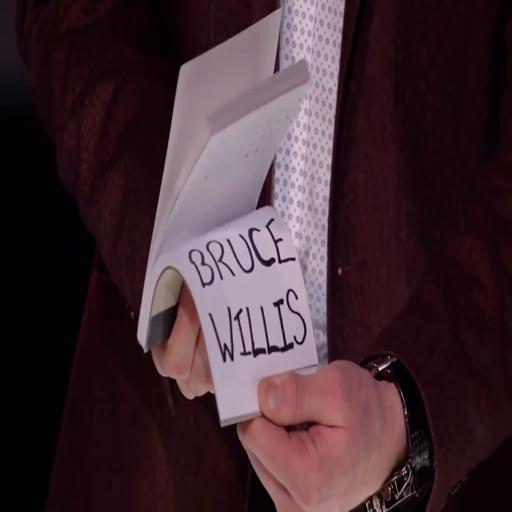 BRUCE
WILLIS